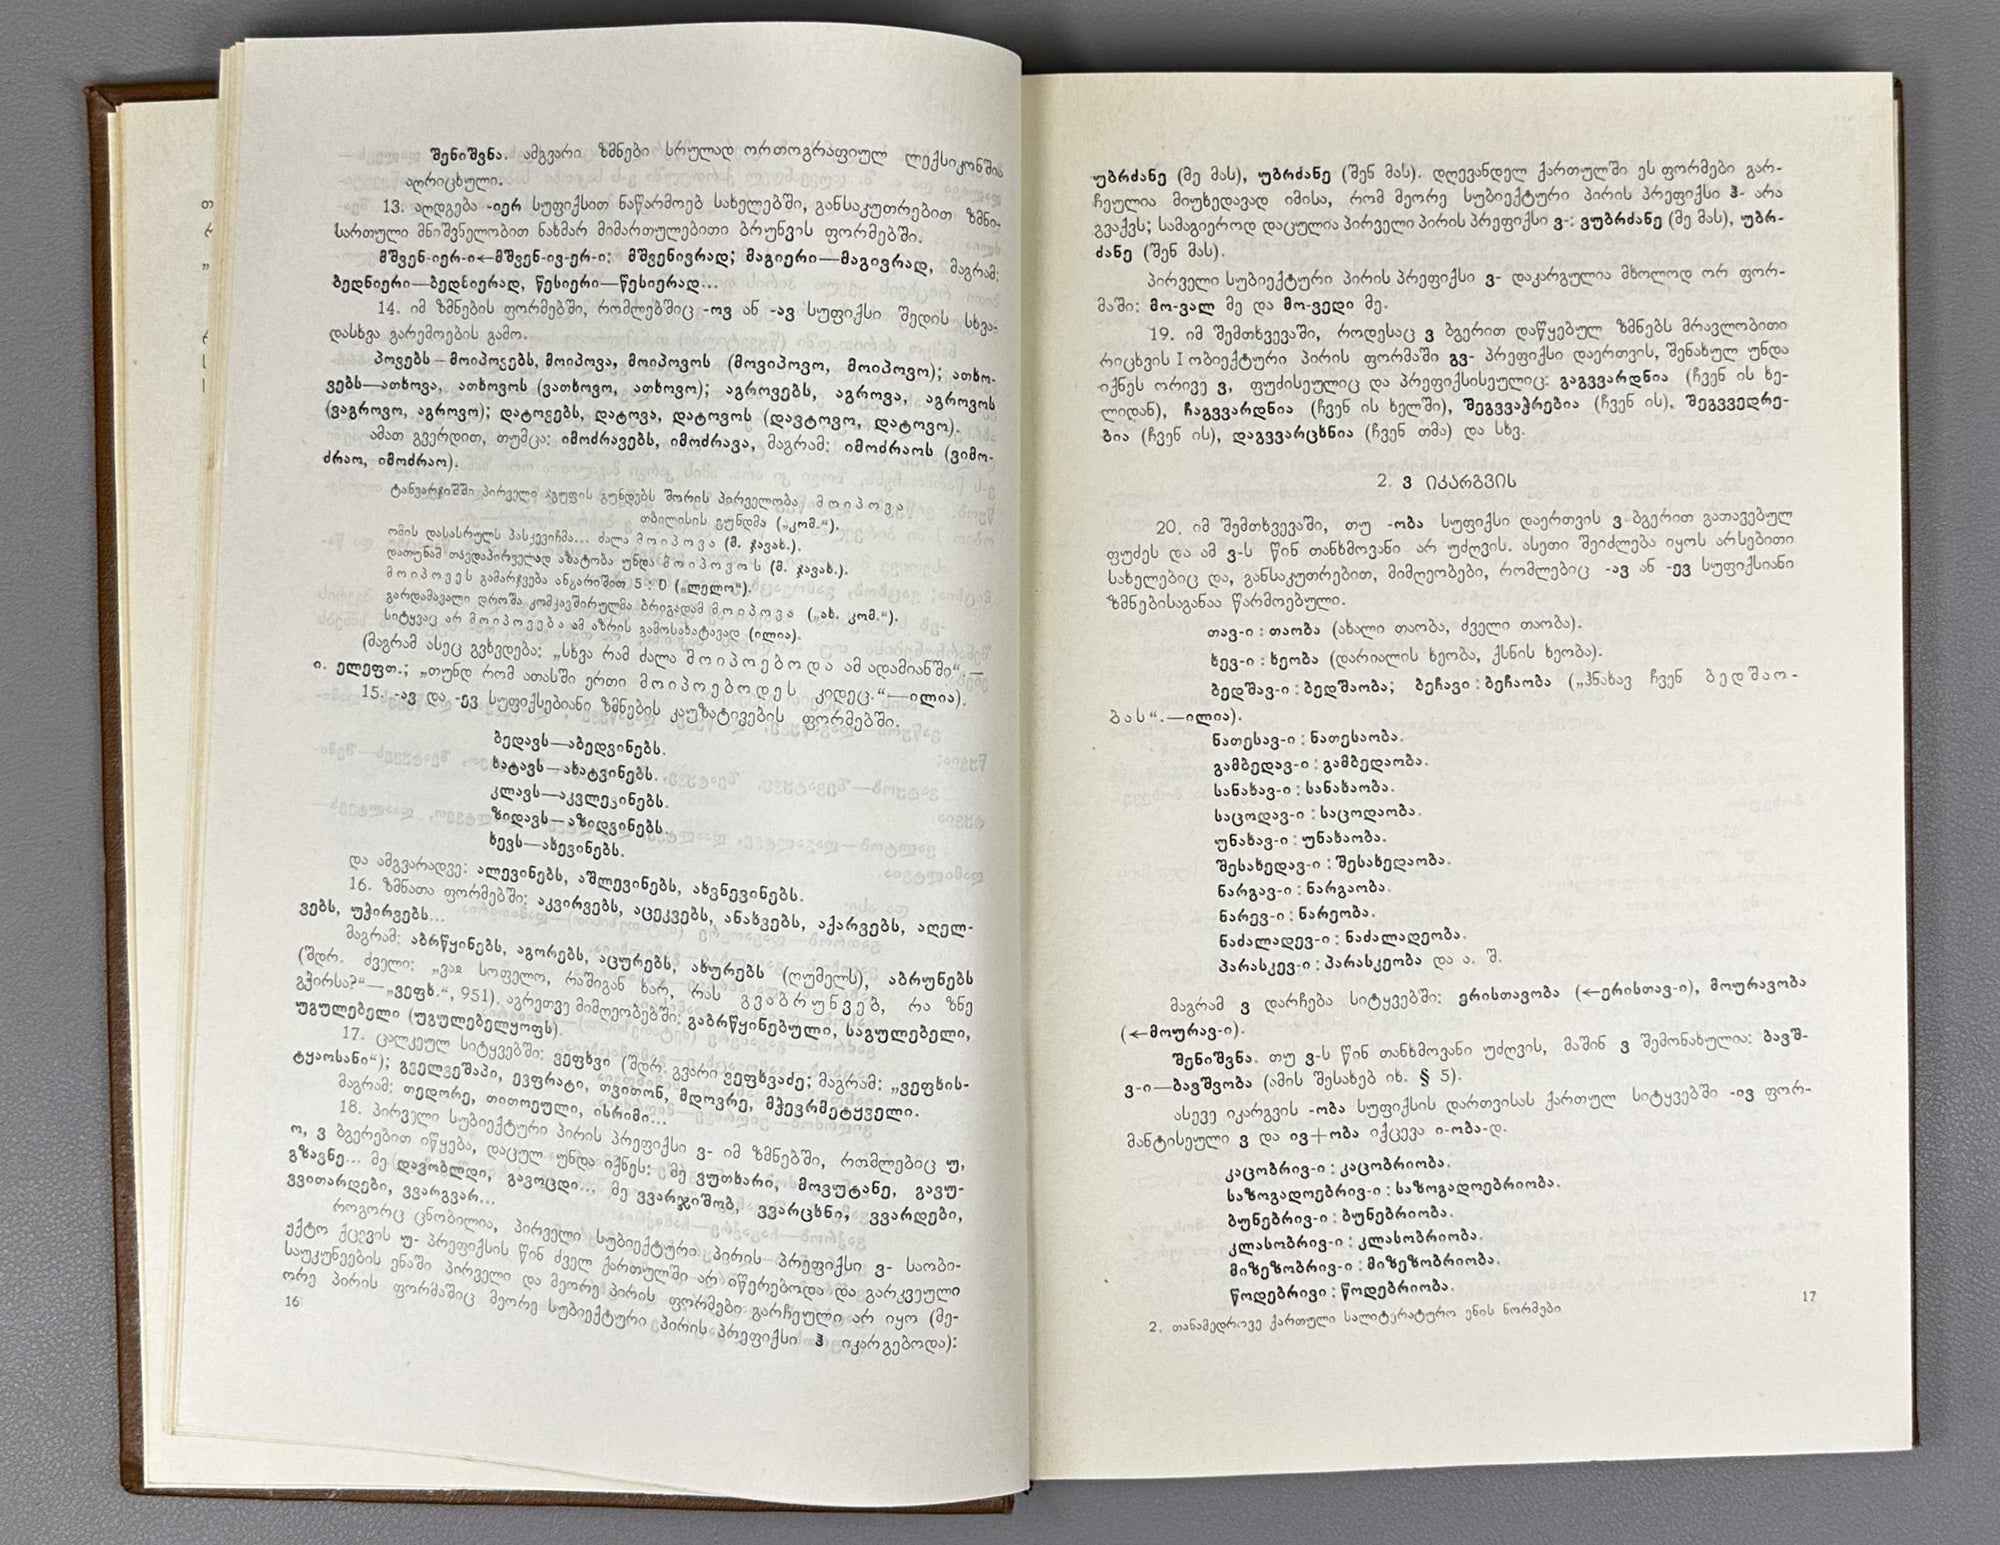 შენიშვნა. ამგვარი ზმნები სრულად ორთოგრაფიულ ლექსიკონშია
აღრიცხული.
13. აღდგება -იერ სუფიქსით ნაწარმოებ სახელებში, განსაკუთრებით ზმნი-
სართული მნიშვნელობით ნახმარ მიმართულებითი ბრუნვის ფორმებში.
მშვენ-იერ-ი←მშვენ-ივ-ერ-ი: მშვენივრად; მაგიერი—მაგივრად, მაგრამ:
ბედნიერი—ბედნიერად, წესიერი—წესიერად...
14. იმ ზმნების ფორმებში, რომლებშიც -ოვ ან -ავ სუფიქსი შედის სხვა-
დასხვა გარემოების გამო.
პოვებს—მოიპოვებს, მოიპოვა, მოიპოვოს (მოვიპოვო, მოიპოვო); ათხო-
ვებს—ათხოვა, ათხოვოს (ვათხოვო, ათხოვო); აგროვებს, აგროვა, აგროვოს
(ვაგროვო, აგროვო); დატოვებს, დატოვა, დატოვოს (დავტოვო, დატოვო).
ამათ გვერდით, თუმცა: იმოძრავებს, იმოძრავა, მაგრამ: იმოძრაოს (ვიმო-
ძრაო, იმოძრაო).
ტანვარჯიშში პირველი ჯგუფის გუნდებს შორის პირველობა მოიპოვა
თბილისის გუნდმა („კომ.“).
ომის დასასრულს პასკევიჩმა... ძალა მოიპოვა (მ. ჯავახ.).
დათუნამ თავდაპირველად აზატობა უნდა მოიპოვოს (მ. ჯავახ.).
მოიპოვეს გამარჯვება ანგარიშით 5 : 0 („ლელო“).
გარდამავალი დროშა კომკავშირულმა ბრიგადამ მოიპოვა („ახ. კომ.“).
სიტყვაც არ მოიპოვება ამ აზრის გამოსახატავად (ილია).
(მაგრამ ასეც გვხვდება: „სხვა რამ ძალა მოიპოებოდა ამ ადამიანში“,—
ი. ელეფთ.; „თუნდ რომ ათასში ერთი მოიპოებოდეს კიდეც.“—ილია).
15. -ავ და -ევ სუფიქსებიანი ზმნების კაუზატივების ფორმებში.
ბედავს—აბედვინებს.
ხატავს—ახატვინებს.
კლავს—აკვლევინებს.
ზიდავს—აზიდვინებს.
ხევს—ახევინებს.
და ამგვარადვე: ალევინებს, აშლევინებს, ახვნევინებს.
16. ზმნათა ფორმებში: აკვირვებს, აცეკვებს, ანახვებს, აქარვებს, აღელ-
ვებს, უჭირვებს...
მაგრამ: აბრწყინებს, აგორებს, აცურებს, ახურებს (ღუმელს), აბრუნებს
(შდრ. ძველი: „ვაჲ სოფელო, რაშიგან ხარ, რას გვაბრუნვებ, რა ზნე
გჭირსა?“—„ვეფხ.“, 951). აგრეთვე მიმღეობებში: გაბრწყინებული, საგულებელი,
უგულებელი (უგულებელყოფს).
17. ცალკეულ სიტყვებში: ვეფხვი (შდრ. გვარი ვეფხვაძე; მაგრამ: „ვეფხის-
ტყაოსანი“); გველვეშაპი, ევფრატი, თვითონ, მდოვრე, მჭევრმეტყველი.
მაგრამ: თედორე, თითოეული, ისრიმი...
18. პირველი სუბიექტური პირის პრეფიქსი ვ- იმ ზმნებში, რომლებიც უ,
ო, ვ ბგერებით იწყება, დაცულ უნდა იქნეს: მე ვუთხარი, მოვუტანე, გავუ-
გზავნე... მე დავობლდი, გავოცდი... მე ვვარჯიშობ, ვვარცხნი, ვვარდები,
ვვითარდები, ვვარგვარ...
როგორც ცნობილია, პირველი სუბიექტური პირის პრეფიქსი ვ- საობი-
ექტო ქცევის უ- პრეფიქსის წინ ძველ ქართულში არ იწერებოდა და გარკვეული
საუკუნეების ენაში პირველი და მეორე პირის ფორმები გარჩეული არ იყო (მე-
ორე პირის ფორმაშიც მეორე სუბიექტური პირის პრეფიქსი ჰ იკარგებოდა):
16
უბრძანე (მე მას), უბრძანე (შენ მას). დღევანდელ ქართულში ეს ფორმები გარ-
ჩეულია მიუხედავად იმისა, რომ მეორე სუბიექტური პირის პრეფიქსი ჰ- არა
გვაქვს; სამაგიეროდ დაცულია პირველი პირის პრეფიქსი ვ-: ვუბრძანე (მე მას), უბრ-
ძანე (შენ მას).
პირველი სუბიექტური პირის პრეფიქსი ვ- დაკარგულია მხოლოდ ორ ფორ-
მაში: მო-ვალ მე და მო-ვედი მე.
19. იმ შემთხვევაში, როდესაც ვ ბგერით დაწყებულ ზმნებს მრავლობითი
რიცხვის I ობიექტური პირის ფორმაში გვ- პრეფიქსი დაერთვის, შენახულ უნდა
იქნეს ორივე ვ, ფუძისეულიც და პრეფიქსისეულიც: გაგვვარდნია (ჩვენ ის ხე-
ლიდან), ჩაგვვარდნია (ჩვენ ის ხელში), შეგვვაჭრებია (ჩვენ ის), შეგვვედრე-
ბია (ჩვენ ის), დაგვვარცხნია (ჩვენ თმა) და სხვ.
2. ვ იკარგვის
20. იმ შემთხვევაში, თუ -ობა სუფიქსი დაერთვის ვ ბგერით გათავებულ
ფუძეს და ამ ვ-ს წინ თანხმოვანი არ უძღვის. ასეთი შეიძლება იყოს არსებითი
სახელებიც და, განსაკუთრებით, მიმღეობები, რომლებიც -ავ ან -ევ სუფიქსიანი
ზმნებისაგანაა წარმოებული.
თავ-ი : თაობა (ახალი თაობა, ძველი თაობა).
ხევ-ი : ხეობა (დარიალის ხეობა, ქსნის ხეობა).
ბედშავ-ი : ბედშაობა; ბეჩავი : ბეჩაობა („ჰნახავ ჩვენ ბედშაო-
ბას“.—ილია).
ნათესავ-ი : ნათესაობა.
გამბედავ-ი : გამბედაობა.
სანახავ-ი : სანახაობა.
საცოდავ-ი : საცოდაობა.
უნახავ-ი : უნახაობა.
შესახედავ-ი : შესახედაობა.
ნარგავ-ი : ნარგაობა.
ნარევ-ი : ნარეობა.
ნაძალადევ-ი : ნაძალადეობა.
პარასკევ-ი : პარასკეობა და ა. შ.
მაგრამ ვ დარჩება სიტყვებში: ერისთავობა (←ერისთავ-ი), მოურავობა
(←მოურავ-ი).
შენიშვნა. თუ ვ-ს წინ თანხმოვანი უძღვის, მაშინ ვ შემონახულია: ბავშ-
ვ-ი—ბავშვობა (ამის შესახებ იხ. § 5).
ასევე იკარგვის -ობა სუფიქსის დართვისას ქართულ სიტყვებში -ივ ფორ-
მანტისეული ვ და ივ+ობა იქცევა ი-ობა-დ.
კაცობრივ-ი : კაცობრიობა.
საზოგადოებრივ-ი : საზოგადოებრიობა.
ბუნებრივ-ი : ბუნებრიობა.
კლასობრივ-ი : კლასობრიობა.
მიზეზობრივ-ი : მიზეზობრიობა.
წოდებრივი : წოდებრიობა.
2. თანამედროვე ქართული სალიტერატურო ენის ნორმები
17